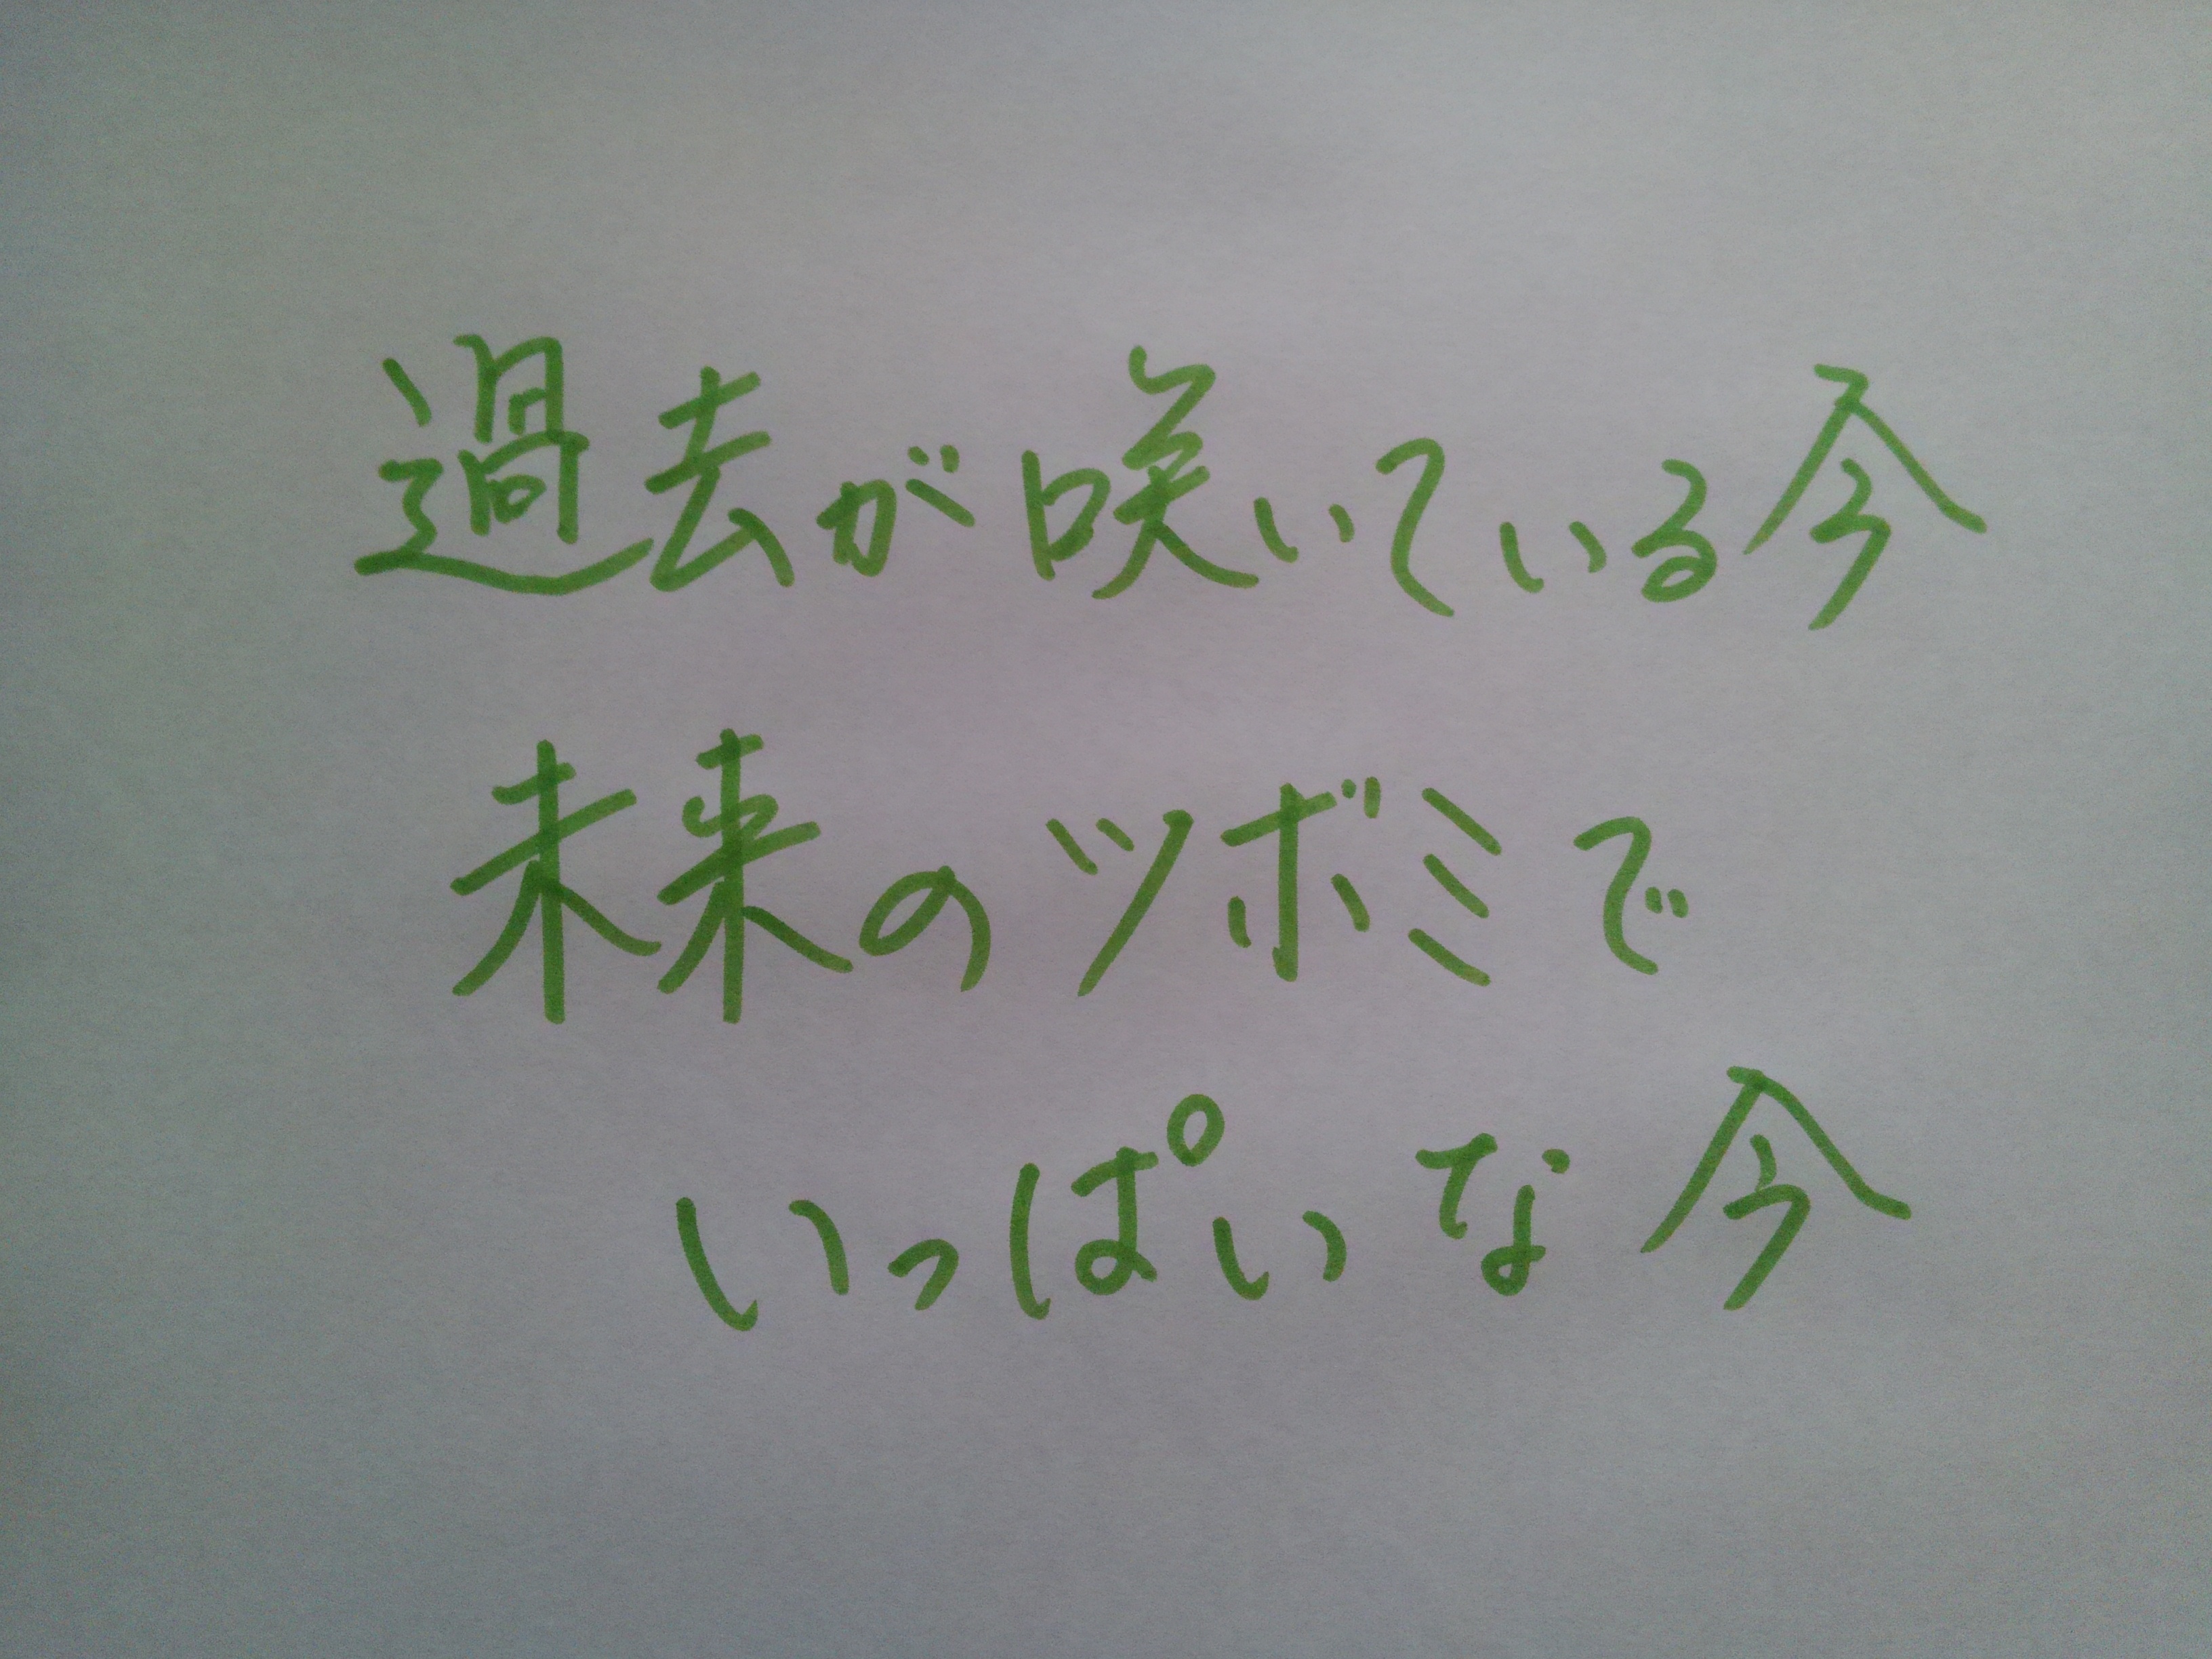 過去が咲いている今
未来のツボミで
いっぱいな今